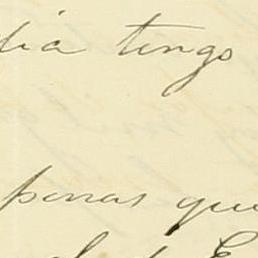 dia tengo
penas que